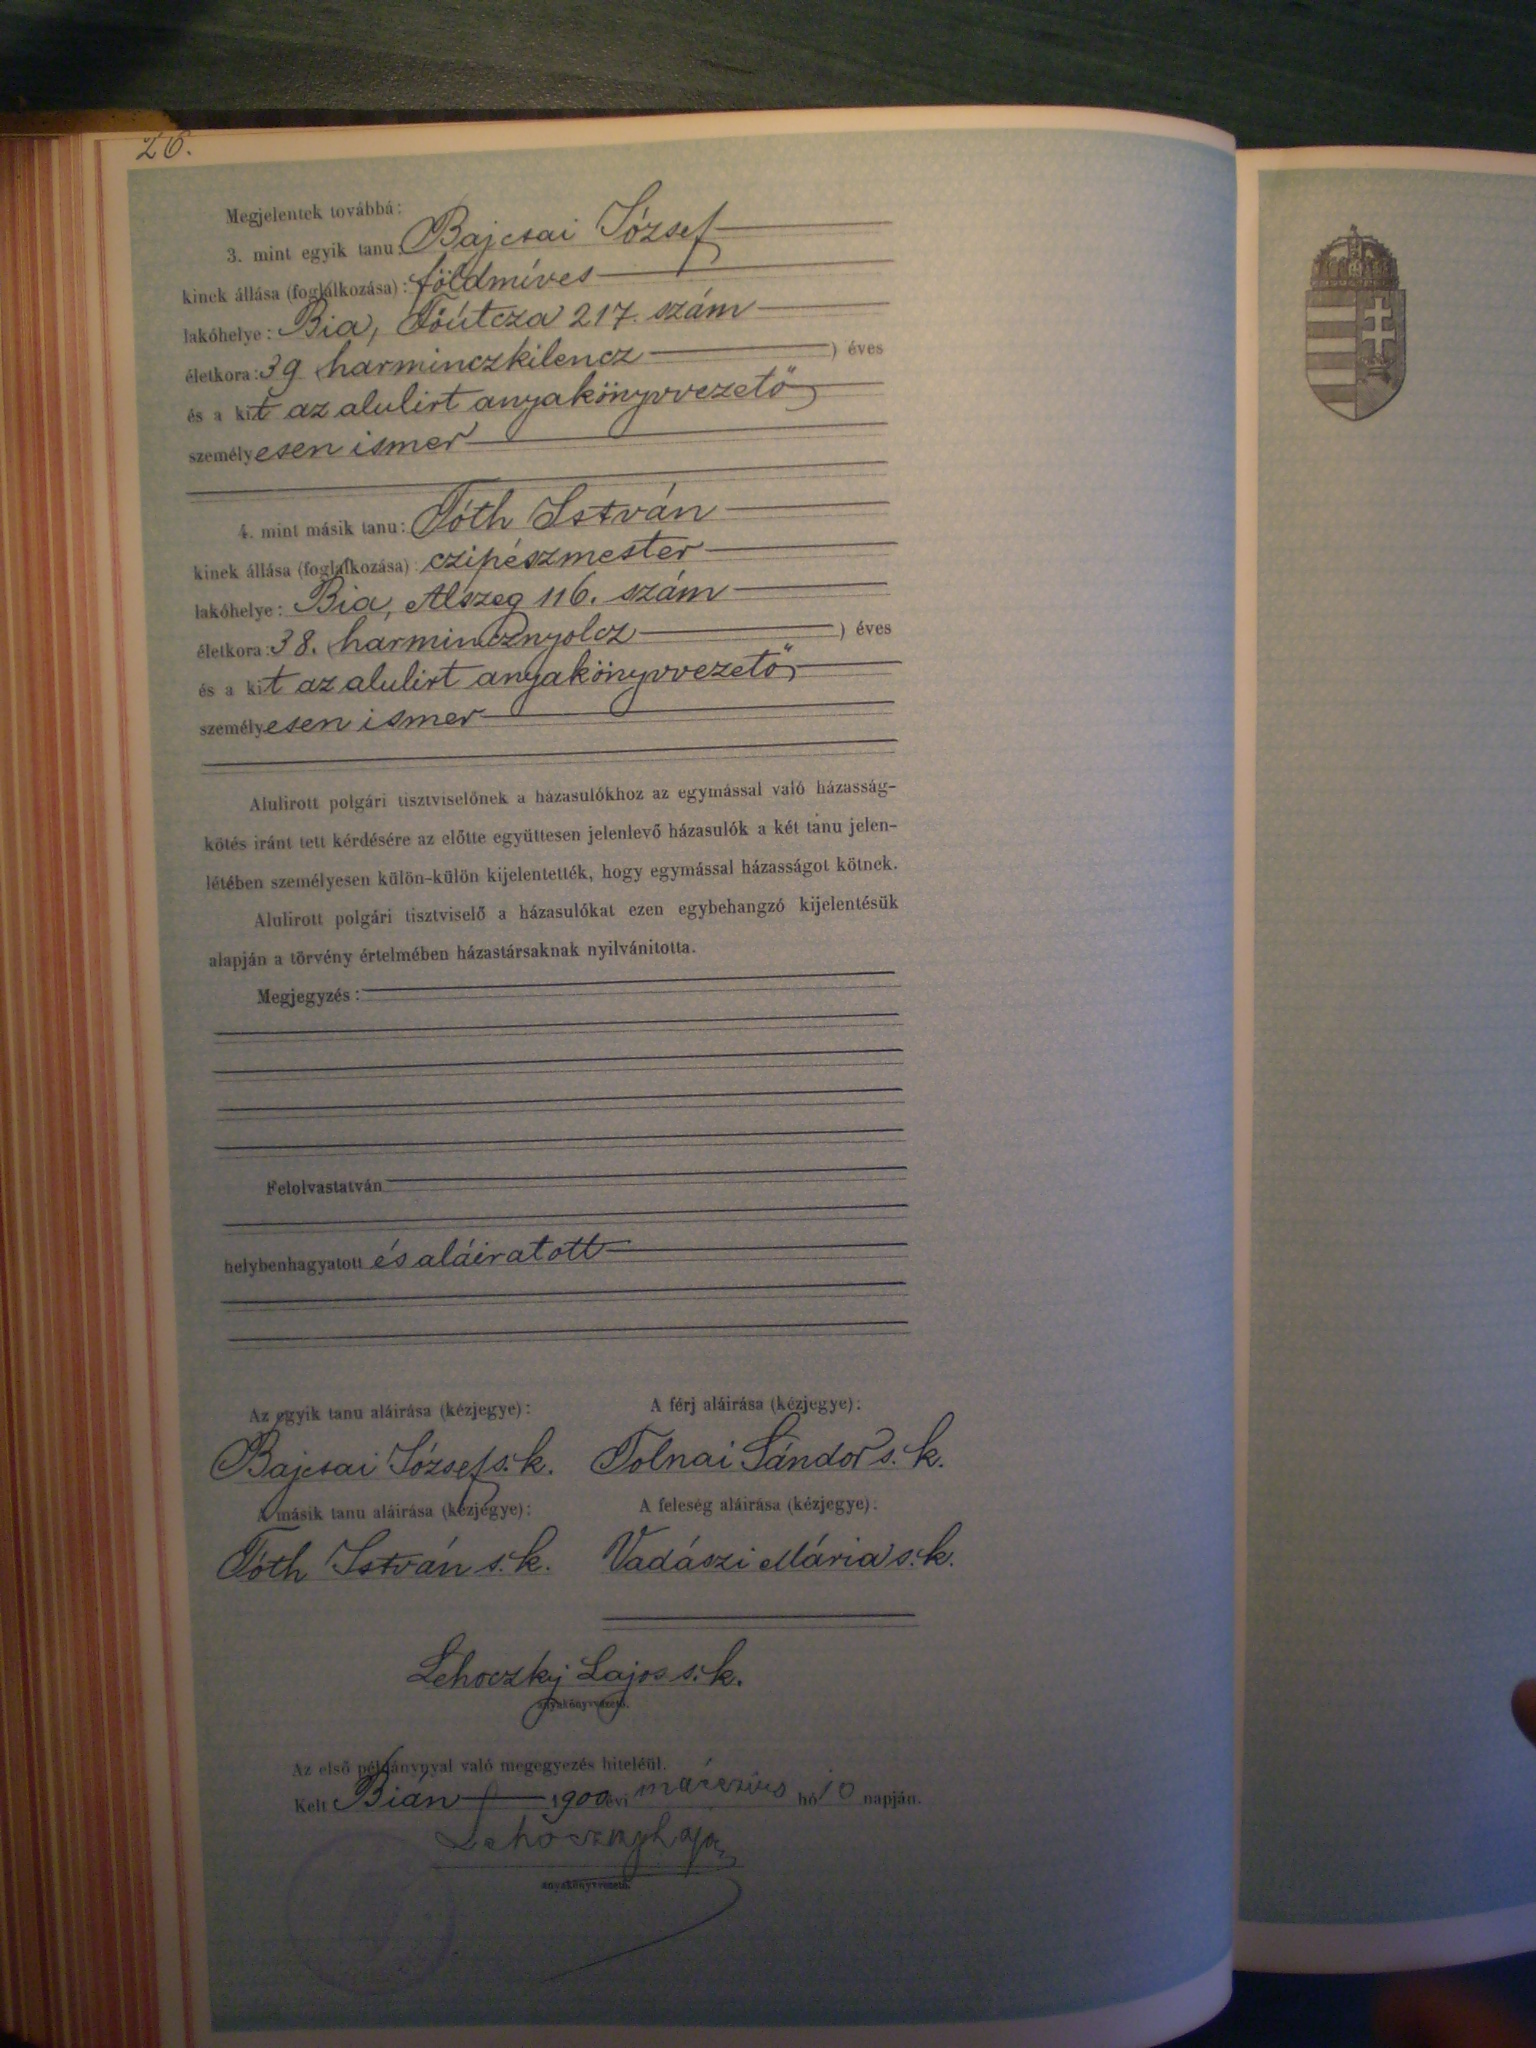 26.
Megjelentek továbbá:
3. mint egyik tanu: Bajcsai József
kinek állása (foglalkozása): földmíves
lakóhelye: Bia, Főútcza 217. szám
életkora: 39 (harminczkilencz ) éves
és a kit az alulirt anyakönyvvezető
személyesen ismer
4. mint másik tanu: Tóth István
kinek állása (foglalkozása): czipészmester
lakóhelye: Bia, Alszeg 116. szám
életkora: 38. (harmincznyolcz ) éves
és a kit az alulirt anyakönyvvezető,
személyesen ismer
Alulirott polgári tisztviselőnek a házasulókhoz az egymással való házasság-
kötés iránt tett kérdésére az előtte együttesen jelenlevő házasulók a két tanu jelen-
létében személyesen külön-külön kijelentették, hogy egymással házasságot kötnek.
Alulirott polgári tisztviselő a házasulókat ezen egybehangzó kijelentésük
alapján a törvény értelmében házastársaknak nyilvánitotta.
Megjegyzés:
Felolvastatván
helybenhagyatott és aláiratott
Az egyik tanu aláirása (kézjegye): A férj aláirása (kézjegye):
Bajcsai József s. k. Tolnai Sándor s. k.
A másik tanu aláirása (kézjegye): A feleség aláirása (kézjegye):
Tóth István s. k. Vadászi Mária s. k.
Lehoczky Lajos s. k.
anyakönyvvezető.
Az első példánynyal való megegyezés hiteléül.
Kelt Bián 1900 évi márczius hó 10 napján.
Lehoczky Lajos
anyakönyvvezető.